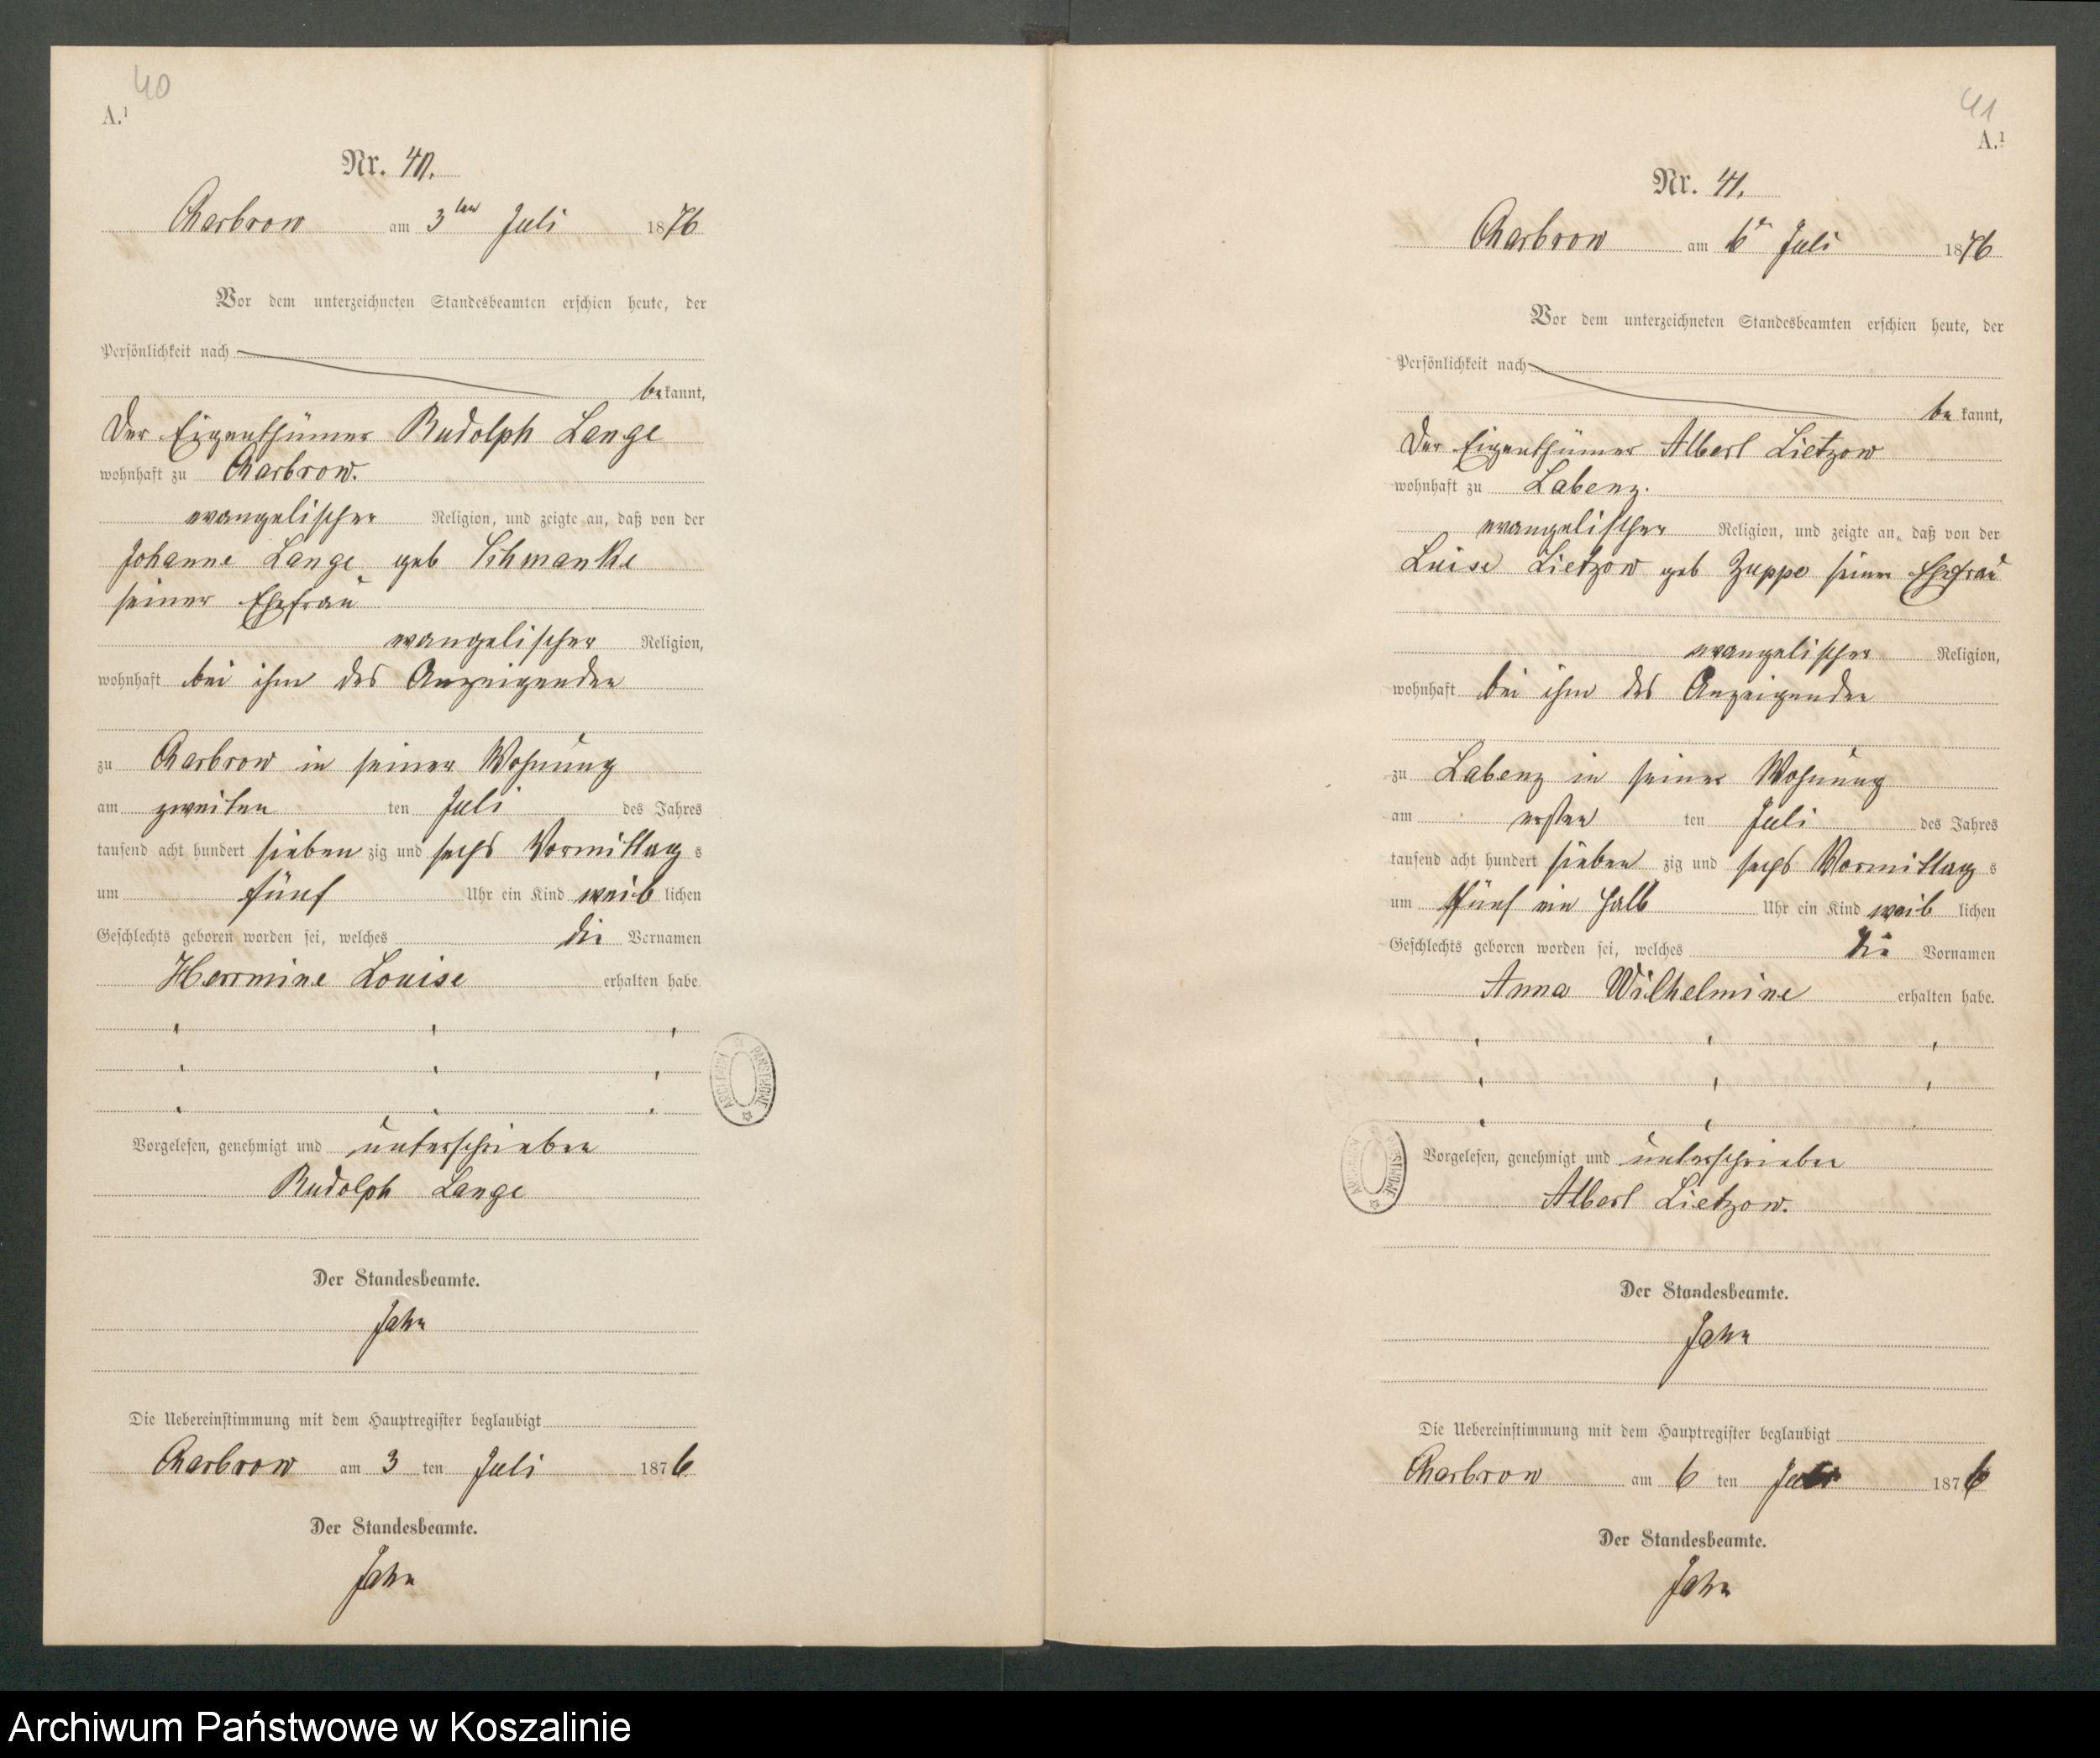 40
A.¹
Nr. 40.
Charbrow am 3ten Juli 1876
Vor dem unterzeichneten Standesbeamten erschien heute, der
Persönlichkeit nach
bekannt,
Der Eigenthümer Rudolph Lange
wohnhaft zu Charbrow.
evangelischer Religion, und zeigte an, daß von der
Johanne Lange geb Schmanke
seiner Ehefrau
evangelischer Religion,
wohnhaft bei ihm des Anzeigenden
zu Charbrow in seiner Wohnung
am zweiten ten Juli des Jahres
tausend acht hundert siebenzig und sechs Vormittags
um fünf Uhr ein Kind weiblichen
Geschlechts geboren worden sei, welches die Vornamen
Herrmine Louise erhalten habe.
Vorgelesen, genehmigt und unterschrieben
Rudolph Lange
Der Standesbeamte.
Jahn
Die Uebereinstimmung mit dem Hauptregister beglaubigt
Charbrow am 3 ten Juli 1876
Der Standesbeamte.
Jahn
ARCHIWUM PAŃSTWOWE
41
A.¹
Nr. 41.
Charbrow am 6n Juli 1876
Vor dem unterzeichneten Standesbeamten erschien heute, der
Persönlichkeit nach
bekannt,
Der Eigenthümer Albert Lietzow
wohnhaft zu Labenz.
evangelischer Religion, und zeigte an, daß von der
Luise Lietzow geb Zuppe seiner Ehefrau
evangelischer Religion,
wohnhaft bei ihm des Anzeigenden
zu Labenz in seiner Wohnung
am ersten ten Juli des Jahres
tausend acht hundert siebenzig und sechs Vormittags
um fünf ein halb Uhr ein Kind weiblichen
Geschlechts geboren worden sei, welches die Vornamen
Anna Wilhelmine erhalten habe.
Vorgelesen, genehmigt und unterschrieben
Albert Lietzow.
Der Standesbeamte.
Jahn
Die Uebereinstimmung mit dem Hauptregister beglaubigt
Charbrow am 6 ten Juli 1876
Der Standesbeamte.
Jahn
ARCHIWUM PAŃSTWOWE
Archiwum Państwowe w Koszalinie